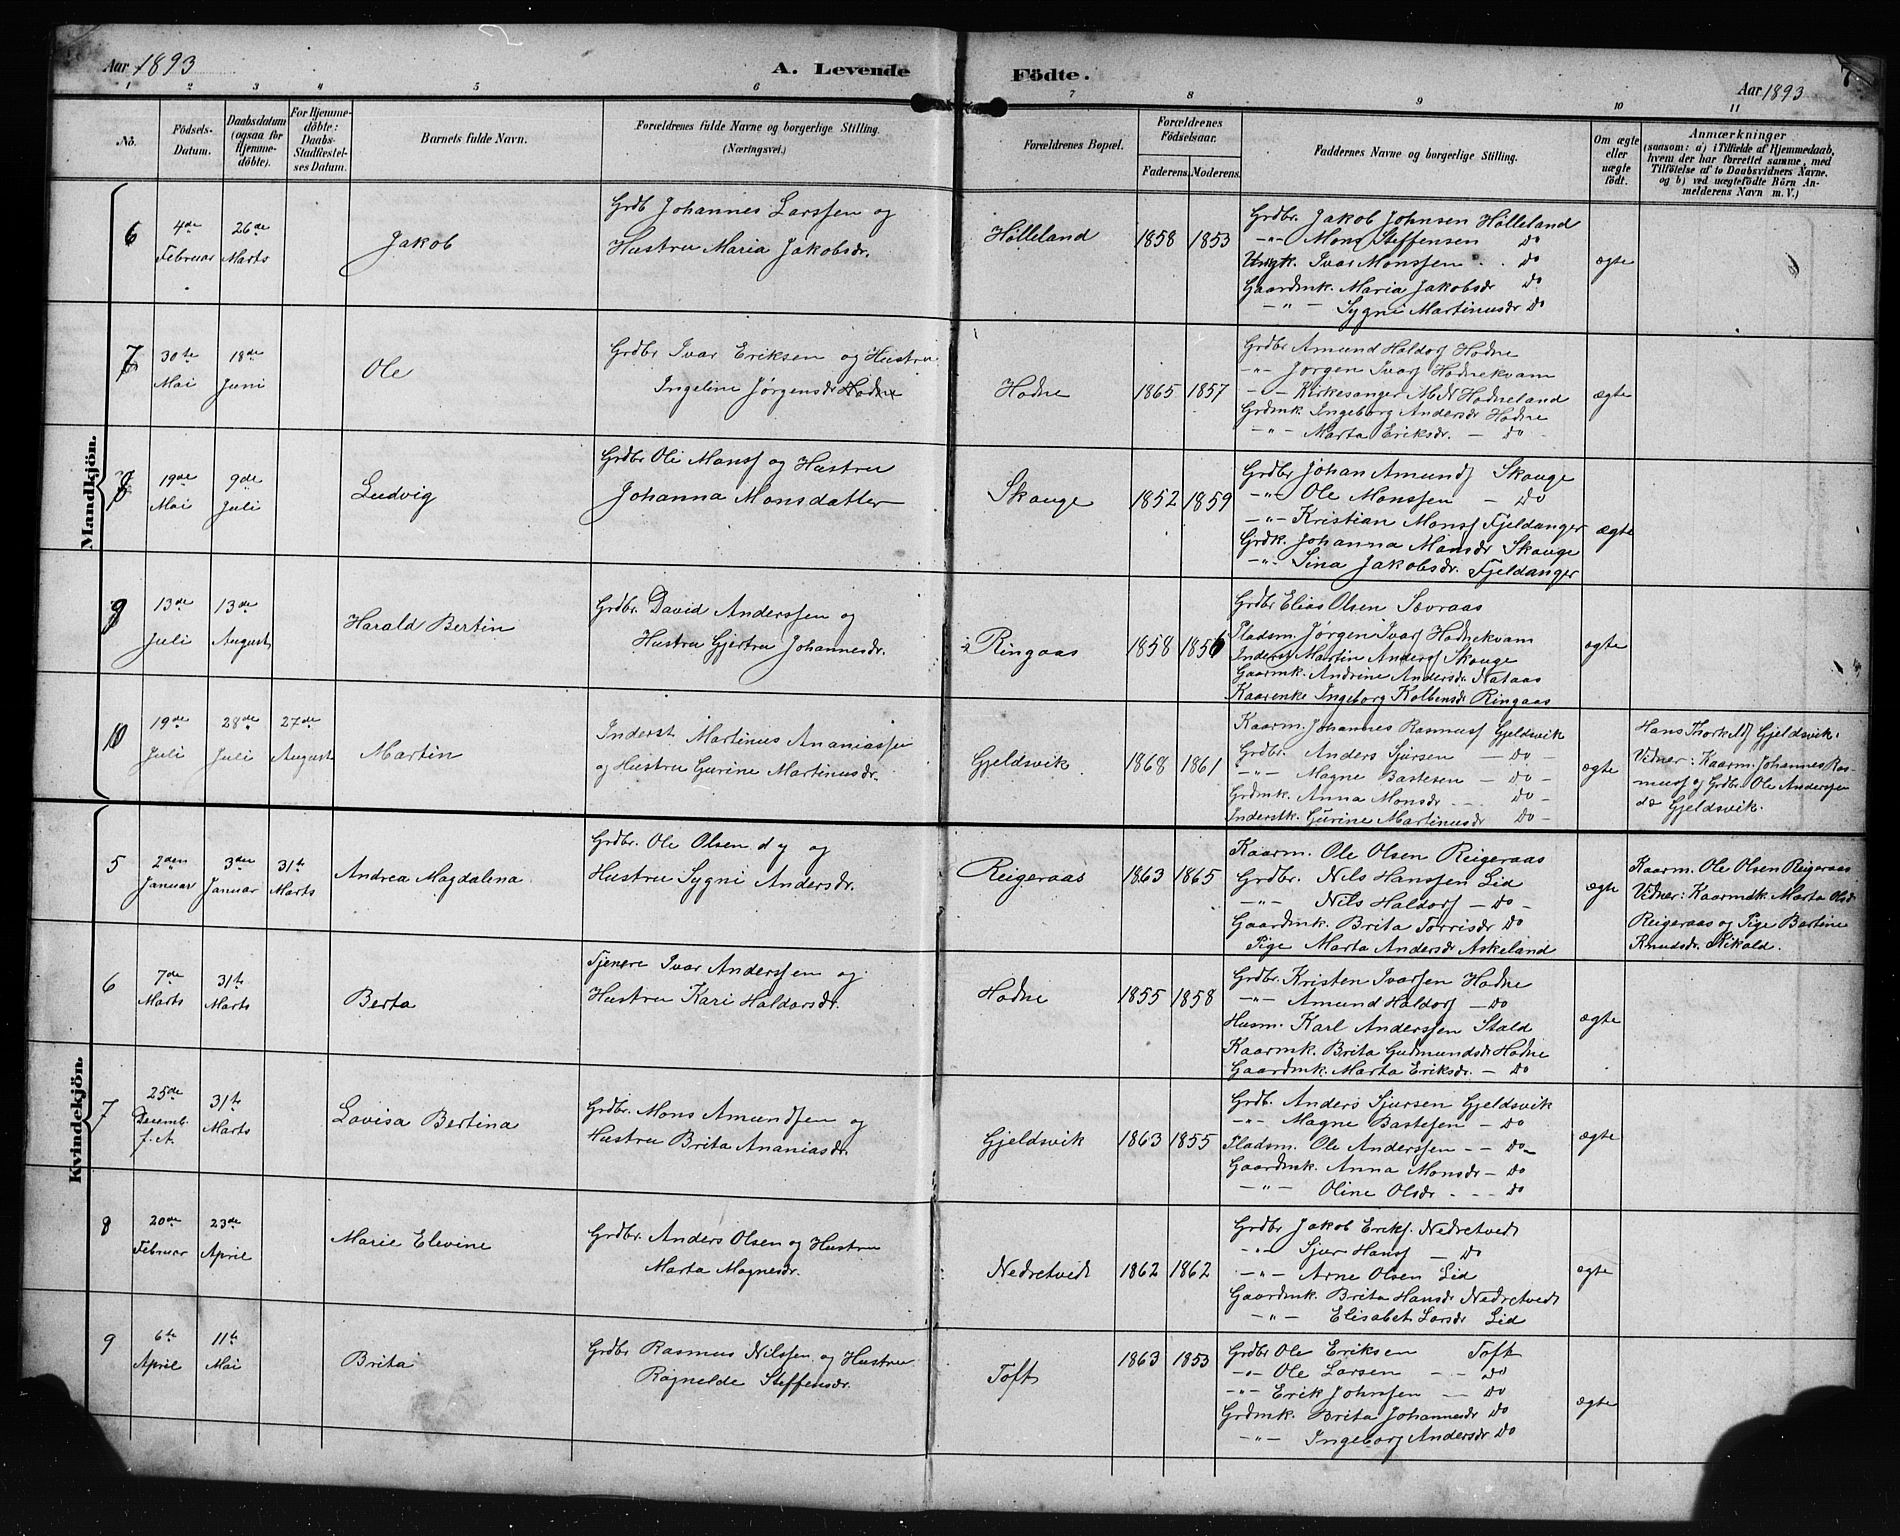 Aar 1893 A. Levende Födte. Aar 1893 7
1 2 3 4 5 6 7 8 9 10 11
No. Födsels-Datum. Daabsdatum (ogsaa for Hjemmedöbte). For Hjemmedöbte: Daabs-Stadfæstelses Datum. Barnets fulde Navn. Forældrenes fulde Navne og borgerlige Stilling. (Næringsvei.) Forældrenes Bopæl. Forældrenes Födselsaar. Faderens. Moderens. Faddernes Navne og borgerlige Stilling. Om ægte eller uægte födt. Anmærkninger (saasom: a) i Tilfælde af Hjemmedaab, hvem der har forrettet samme, med Tilföielse af to Daabsvidners Navne. og b) ved uægtefödte Börn Anmelderens Navn m. V.)
Mandkjön.
6 4de Februar 26de Marts Jakob
Grdb Johannes Larssen og
Hustru Maria Jakobsdr.
Hölleland 1858 1853
Grdbr. Jakob Johnsen Hölleland
-"- Mons Steffensen Do
Ungk. Ivar Monssen Do
Gaardmk. Maria Jakobsdr Do
-"- Sygni Martinusdr Do
ægte
7 30te Mai 18de Juni Ole
Grdbr Ivar Eriksen og Hustru
Ingeline Jørgensdr Hodne
Hodne 1865 1857
Grdbr Amund Haldorf Hodne
-"- Jørgen Ivarf Hodnekvam
-"- Kirkesanger M N Hodneland
Grdmk Ingeborg Andersdr Hodne
-"- Marta Eriksdr. - Do
ægte
8 19de Mai 9de Juli Ludvig
Grdbr Ole Monsf og Hustru
Johanna Monsdatter
Skauge 1852 1859
Grdbr Johan Amundf Skauge
-"- Ole Monssen - Do
-"- Kristian Monsf Fjeldanger
Grdk. Johanna Monsdr Skauge
-"- Sina Jakobsdr. Fjeldanger
ægte
9 13de Juli 13de August Harald Bertin
Grdbr. David Anderssen og
Hustru Gjertru Johannesdr.
Ringaas 1858 1856
Grdbr Elias Olsen Sævraas
Pladsm. Jørgen Ivarf Hodnekvam
Inderst Martin Andersf Skauge
Gaarmk. Andrine Andersdr Nataas
Kaarenke Ingeborg Kolbensdr Ringaas
ægte
10 19de Juli 28de Juli 27de August Martin
Inderst Martinus Ananiassen
og Hustru Gurine Martinusdr.
Gjeldsvik 1868 1861
Kaarm. Johannes Rasmusf Gjeldsvik
Grdbr. Anders Sjursen - Do -
-"- Magne Bastesen - Do -
Grdmk. Anna Monsdr - Do -
Inderstk. Gurine Martinusdr Do -
ægte
Hans Thorkelsf Gjeldsvik.
Vidner: Kaarm. Johannes Ras-
musf og Grdbr. Ole Anderssen
do Gjeldsvik.
Kvindekjön.
5 2den Januar 3die Januar 31te Marts Andrea Magdalena
Grdbr. Ole Olsen d y og
Hustru Sygni Andersdr.
Reigeraas 1863 1865
Kaarm. Ole Olsen Reigeraas
Grdbr. Nils Hanssen Lid
-"- Nils Haldorf - Do -
Gaardmk. Brita Torrisdr Do
Pige Marta Andersdr Askeland
ægte
Kaarm. Ole Olsen Reigeraas
Vidner: Kaarmdk. Marta Olsdr
Reigeraas og Pige Bertine
Knudsdr.
6 7de Marts 31te Marts Berta
Tjenere Ivar Anderssen og
Hustru Kari Haldorsdr.
Hodne 1855 1858
Grdbr. Kristen Ivarsen Hodne
-"- Amund Haldorf - Do
Husm. Karl Anderssen Stald
Kaarmk. Brita Gudmundsdr Hodne
Gaardmk. Marta Eriksdr. - Do
ægte
7 25de Decemb. f. A. 31te Marts Lovisa Bertina
Grdbr. Mons Amundsen og
Hustru Brita Ananiasdr.
Gjeldsvik 1863 1855
Grdb. Anders Sjursen Gjeldsvik
-"- Magne Bastesen - Do
Pladsm. Ole Anderssen - - Do
Gaardmk. Anna Monsdr - Do
-"- Oline Olsdr - - - Do
ægte
8 20de Februar 23de April Marie Elevine
Grdbr. Anders Olsen og Hustru
Marta Magnesdr.
Nedretvedt 1862 1862
Grdbr Jakob Eriksf. Nedretvedt
-"- Sjur Hansf - Do
-"- Arne Olsen Lid
Gaardmk. Brita Hansdr Nedretvedt
-"- Elisabet Larsdr Lid
ægte
9 6te April 11te Mai Brita
Grdbr Rasmus Nilssen og Hustru
Ragnelde Steffensdr.
Toft 1863 1853
Grdbr Ole Eriksen Toft
-"- Ole Larsen - - Do
-"- Erik Johnsen - Do
Grdmk. Brita Johannesdr Do
-"- Ingeborg Andersdr Do
ægte